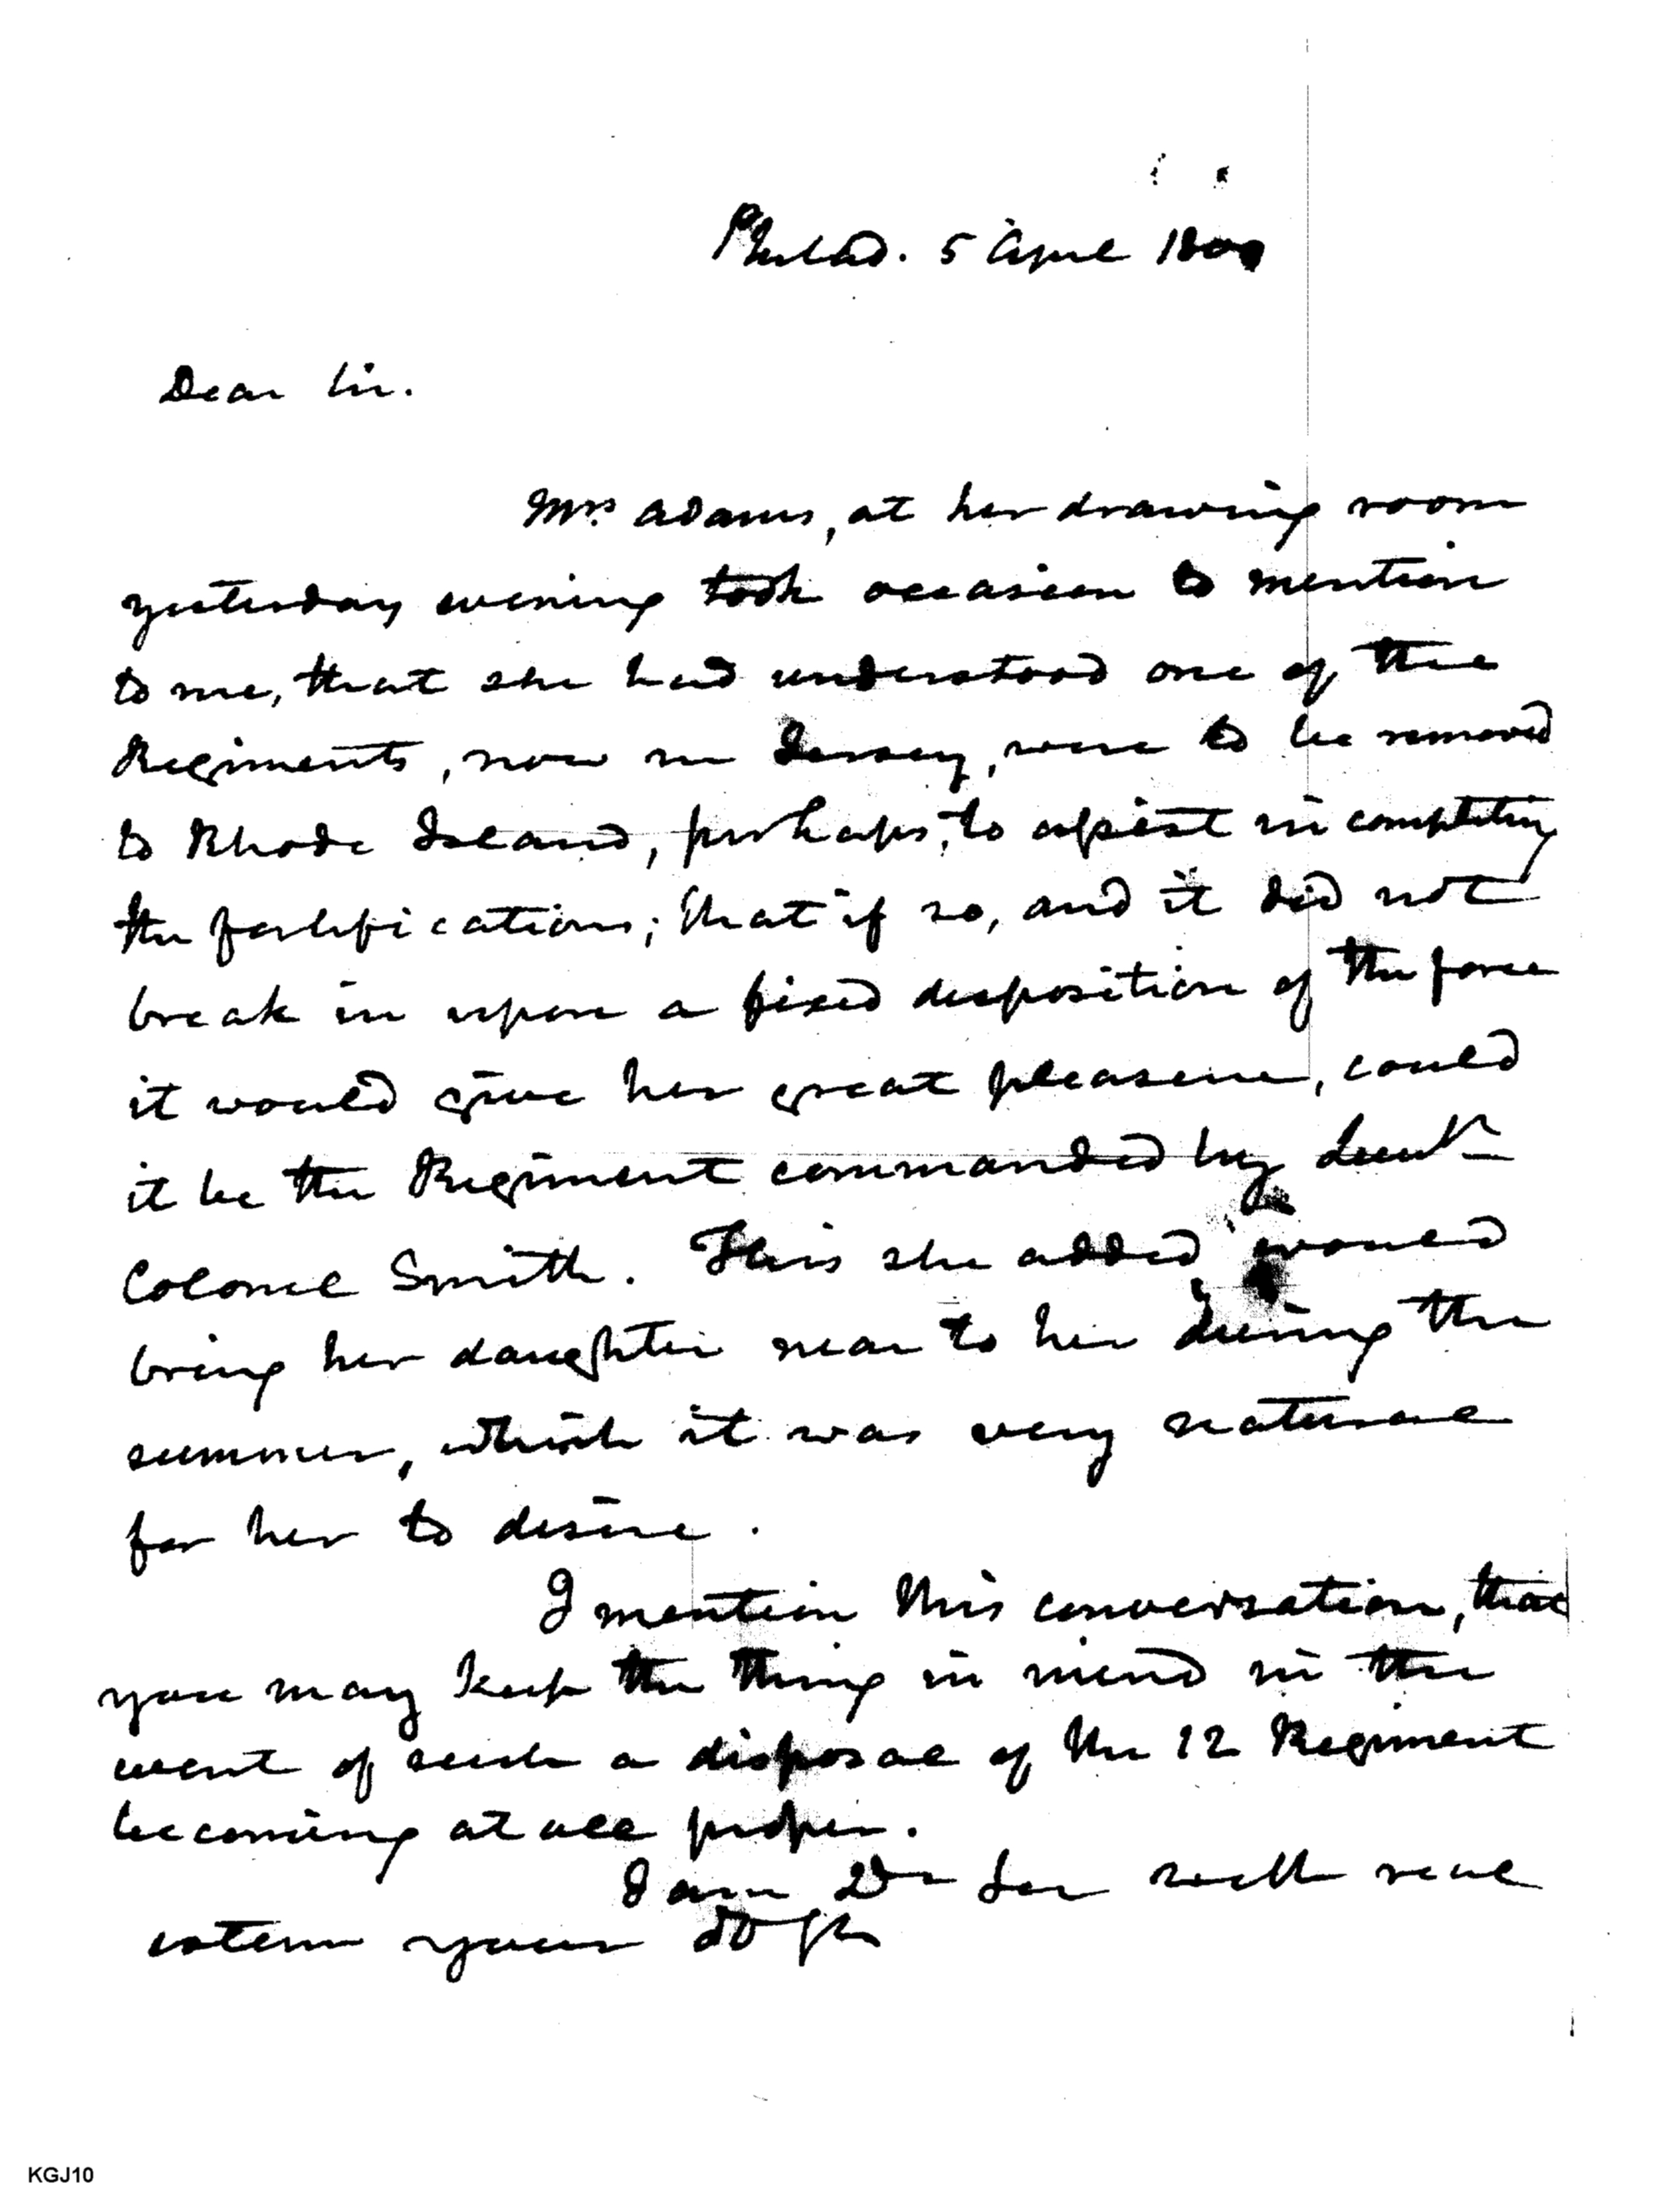 Philad. 5 April 1800
Dear Sir.
Mrs. Adams, at her drawing room
yesterday evening took occasion to mention
to me, that she had understood one of the
Regiments, now in Jersey, were to be removed
to Rhode Island, perhaps, to assist in completing
the fortifications; that if so, and it did not
break in upon a fixed disposition of the force
it would give her great pleasure, could
it be the Regiment commanded by Lieut
Colonel Smith. This she added would
bring her daughter near to her during the
summer, which it was very natural
for her to desire.
I mention this conversation, that
you may keep the thing in mind in the
event of such a disposal of the 12 Regiment
becoming at all proper.
I am Dr Sir with real
esteem your
KGJ10